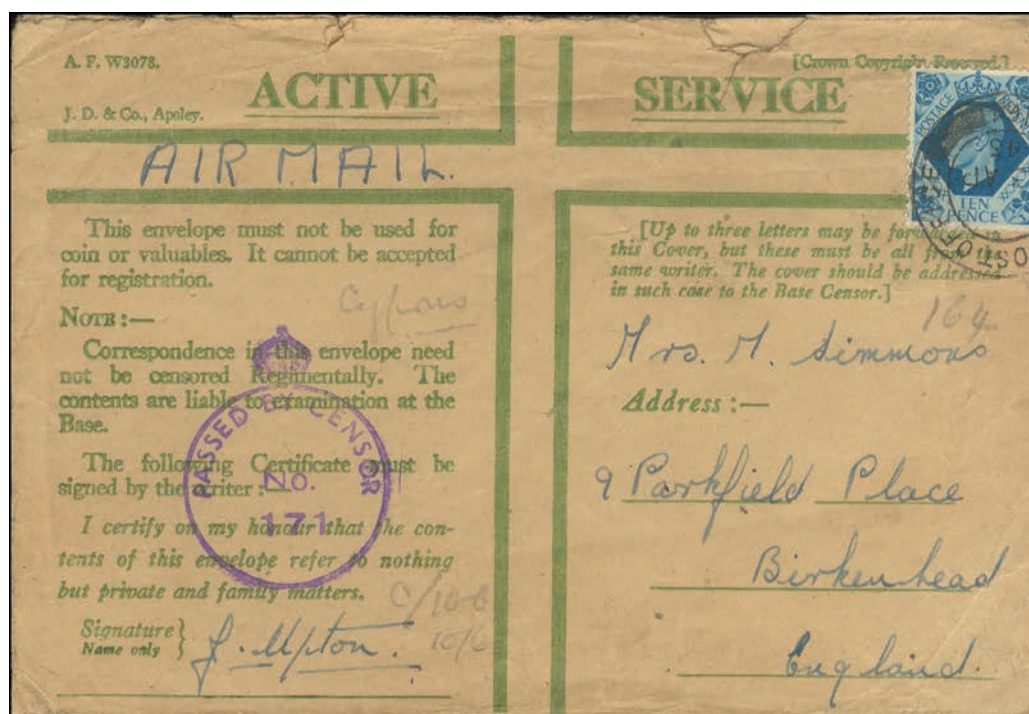 A. F. W3078.
J. D. & Co., Apsley.
ACTIVE
SERVICE
[Crown Copyright Reserved.]
POSTAGE
TEN
PENCE
AIR MAIL.
This envelope must not be used for
coin or valuables. It cannot be accepted
for registration.
NOTE :—
Correspondence in this envelope need
not be censored Regimentally. The
contents are liable to examination at the
Base.
The following Certificate must be
signed by the writer :—
I certify on my honour that the con-
tents of this envelope refer to nothing
but private and family matters.
Signature
Name only
J. Upton.
Cyprus
PASSED BY CENSOR
No.
171
[Up to three letters may be forwarded in
this Cover, but these must be all from the
same writer. The cover should be addressed
in such case to the Base Censor.]
164
Mrs. M. Simmons
Address :—
9 Parkfield Place
Birkenhead
England.